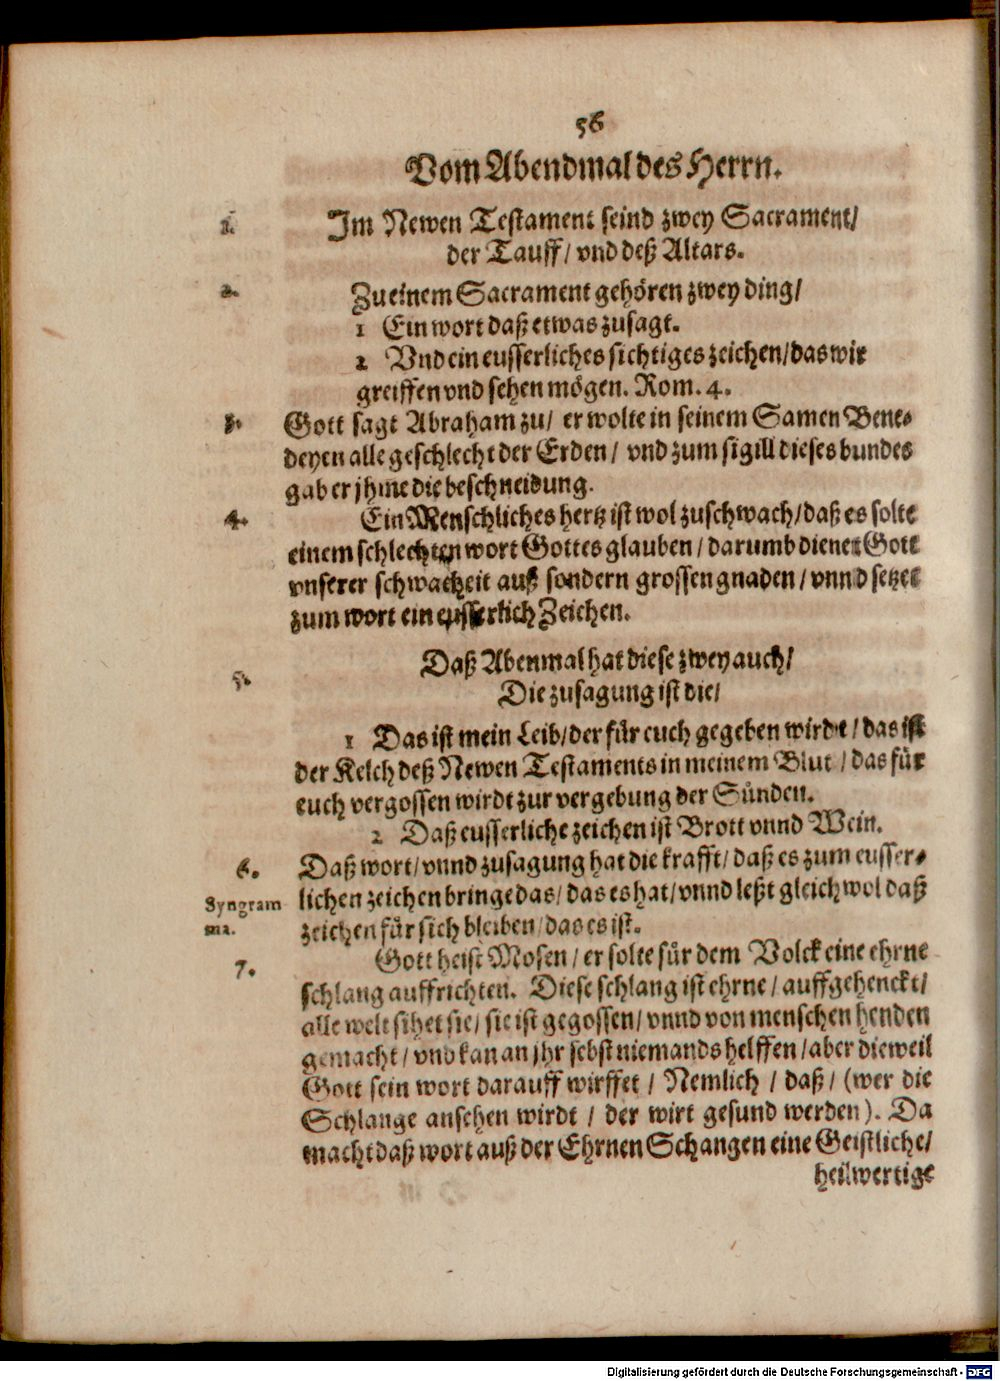 56
Vom Abendmal des Herrn.
1. Im Newen Testament seind zwey Sacrament/
der Tauff/ vnd deß Altars.
2. Zu einem Sacrament gehören zwey ding/
1 Ein wort daß etwas zusagt.
2 Vnd ein eusserliches sichtiges zeichen/ das wir
greiffen vnd sehen mögen. Rom. 4.
3. Gott sagt Abraham zu/ er wolte in seinem Samen Bene-
deyen alle geschlecht der Erden/ vnd zum sigill dieses bundes
gab er jhme die beschneidung.
4. Ein Menschliches hertz ist wol zu schwach/ daß es solte
einem schlechten wort Gottes glauben/ darumb dienet Gott
vnserer schwacheit auß sondern grossen gnaden/ vnnd setzet
zum wort ein eusserlich Zeichen.
5. Daß Abenmal hat diese zwey auch/
Die zusagung ist die/
1 Das ist mein Leib/ der für euch gegeben wirdt/ das ist
der Kelch deß Newen Testaments in meinem Blut/ das für
euch vergossen wirdt zur vergebung der Sünden.
2 Daß eusserliche zeichen ist Brott vnnd Wein.
6. Daß wort/ vnnd zusagung hat die krafft/ daß es zum eusser-
Syngram lichen zeichen bringe das/ das es hat/ vnnd leßt gleichwol daß
ma. zeichen für sich bleiben/ das es ist.
7. Gott heist Mosen/ er solte für dem Volck eine ehrne
schlang auffrichten. Diese schlang ist ehrne/ auffgehenckt/
alle welt sihet sie/ sie ist gegossen/ vnnd von menschen henden
gemacht/ vnd kan an jhr sebst niemands helffen/ aber dieweil
Gott sein wort darauff wirffet/ Nemlich/ daß/ (wer die
Schlange ansehen wirdt/ der wirt gesund werden). Da
macht daß wort auß der Ehrnen Schangen eine Geistliche/
heilwertige
Digitalisierung gefördert durch die Deutsche Forschungsgemeinschaft - DFG